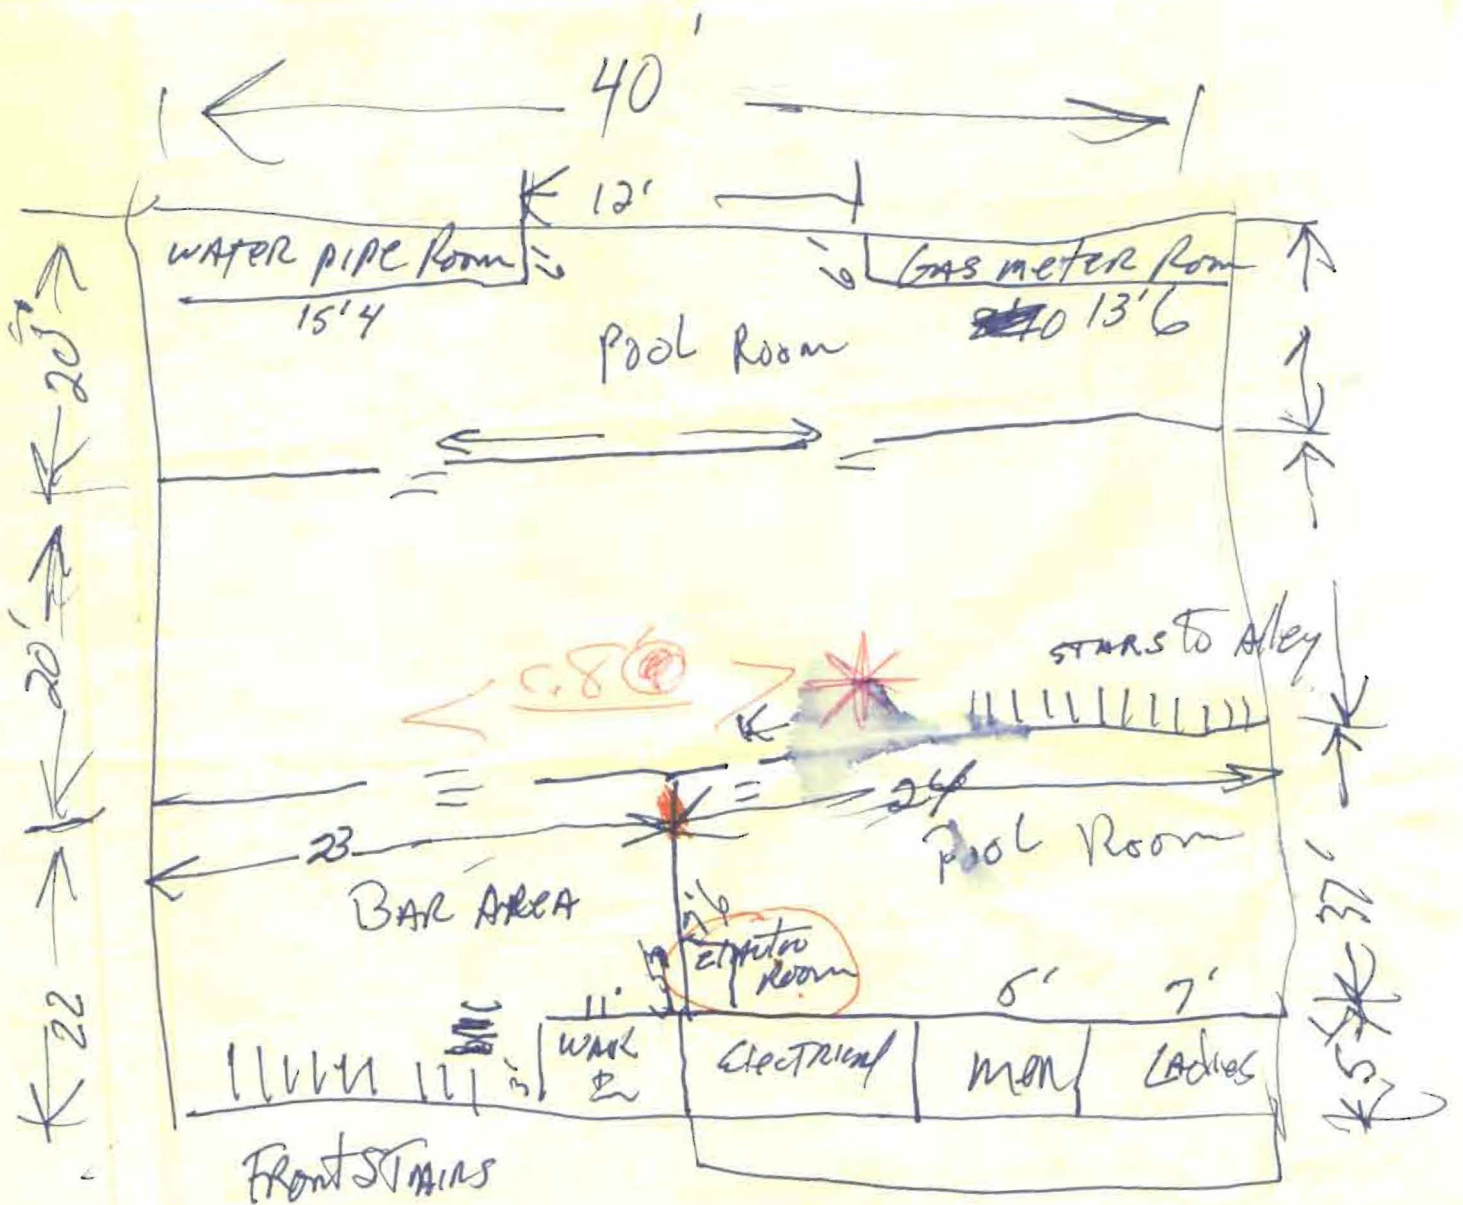 40'
12'
WATER PIPE Room
GAS meter Room
15'4
13'6
Pool Room
20'
20'
STARS to Alley
c.8
24
23
Pool Room
BAR AREA
37'
22
Room
11'
6'
7'
WALK
In
Electrical
men
LAdies
5
3'
Front STAIRS